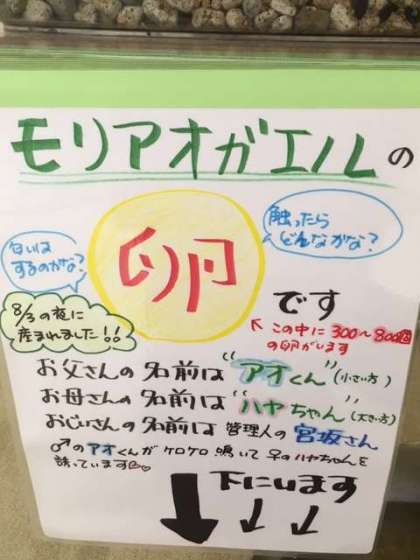 モリアオガエルの
匂いは
するのかな?
触ったら
どんなかな?
卵
8/3の夜に
産まれました!!
です
↖この中に300〜800個
の卵がいます
お父さんの名前は"アオくん"(小さい方)
お母さんの名前は"ハヤちゃん"(大きい方)
おじいさんの名前は管理人の宮坂さん
♂のアオくんがケロケロ鳴いて♀のハヤちゃんを
誘っています♡
下にいます